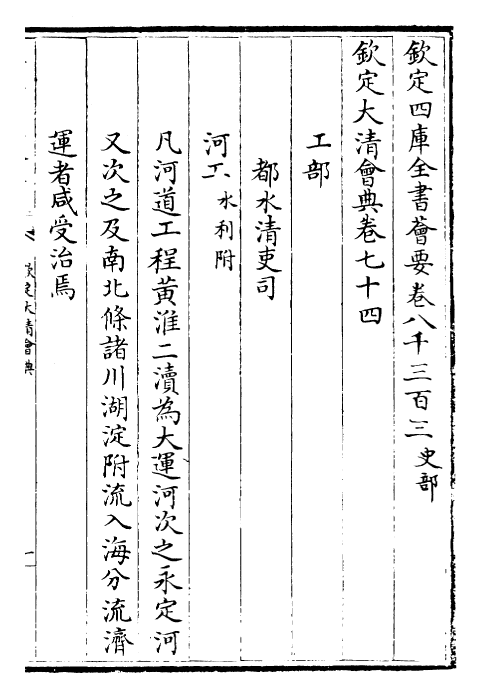 欽定四庫全書薈要卷八千三百三 史部
欽定大清會典卷七十四
工部
都水清吏司
河工 水利附
凡河道工程黃淮二瀆為大運河次之永定河
又次之及南北條諸川湖淀附流入海分流濟
運者咸受治焉
欽定大清會典
一